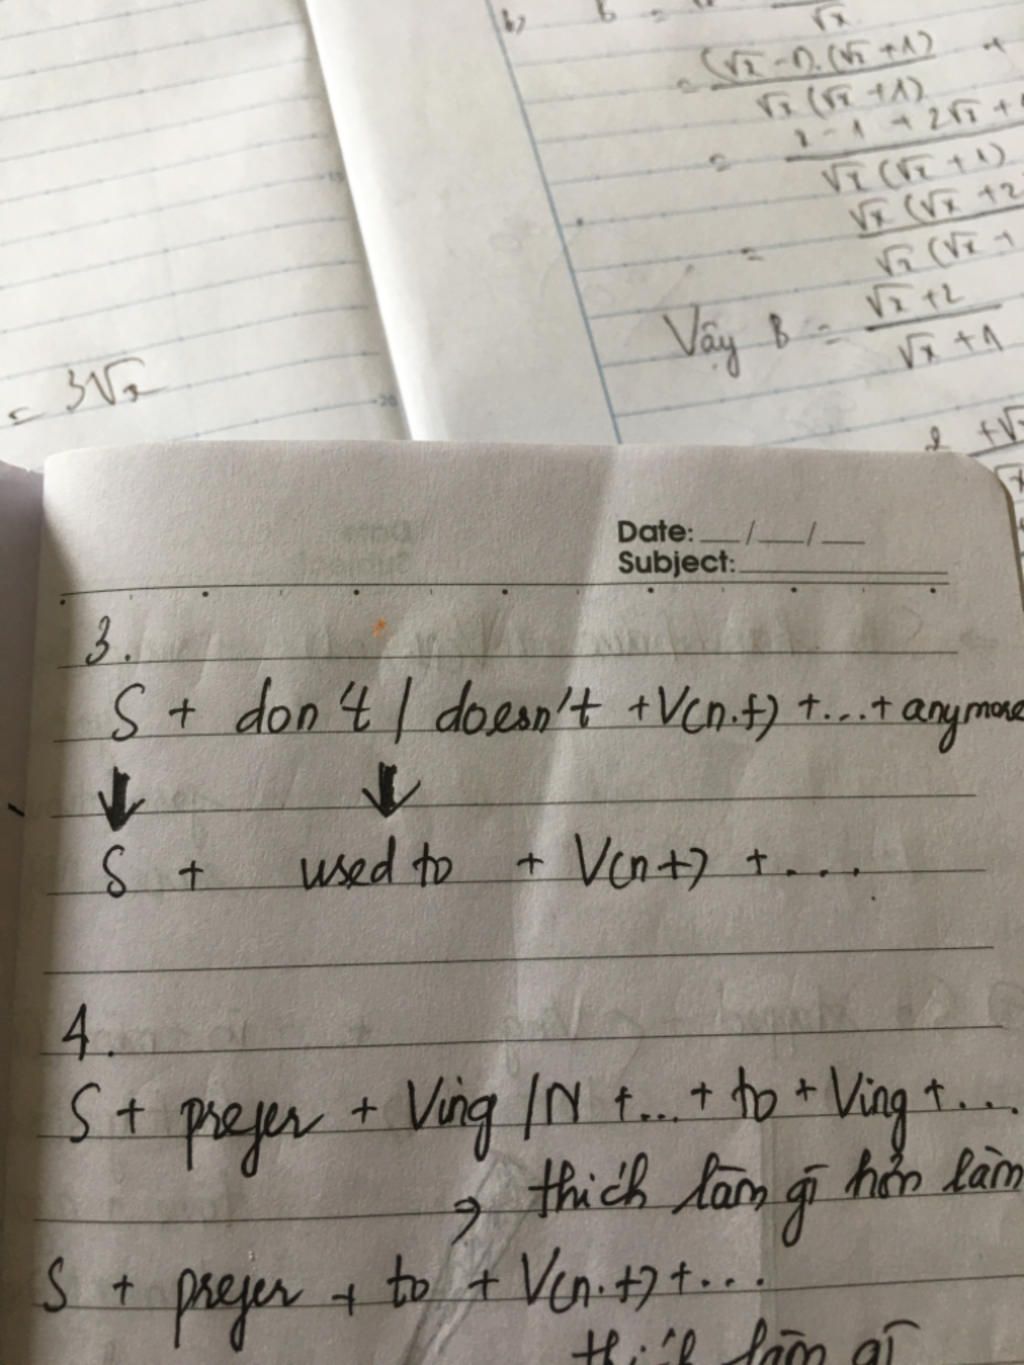 = 3√x
b) B =
√x
= (√x - 1).(√x + 1) +
√x (√x + 1)
= x - 1 + 2√x +
√x (√x + 1)
= √x (√x + 2
√x (√x +
Vậy B = √x + 2
√x + 1
Date: __/__/__
Subject:
3.
S + don't / doesn't + V(n.t) +...+ anymore
↓ ↓
S + used to + V(n.t) + ....
4.
S + prefer + Ving /N +...+ to + Ving +...
→ thích làm gì hơn làm
S + prefer + to + V(n.t) +...
thích làm gì